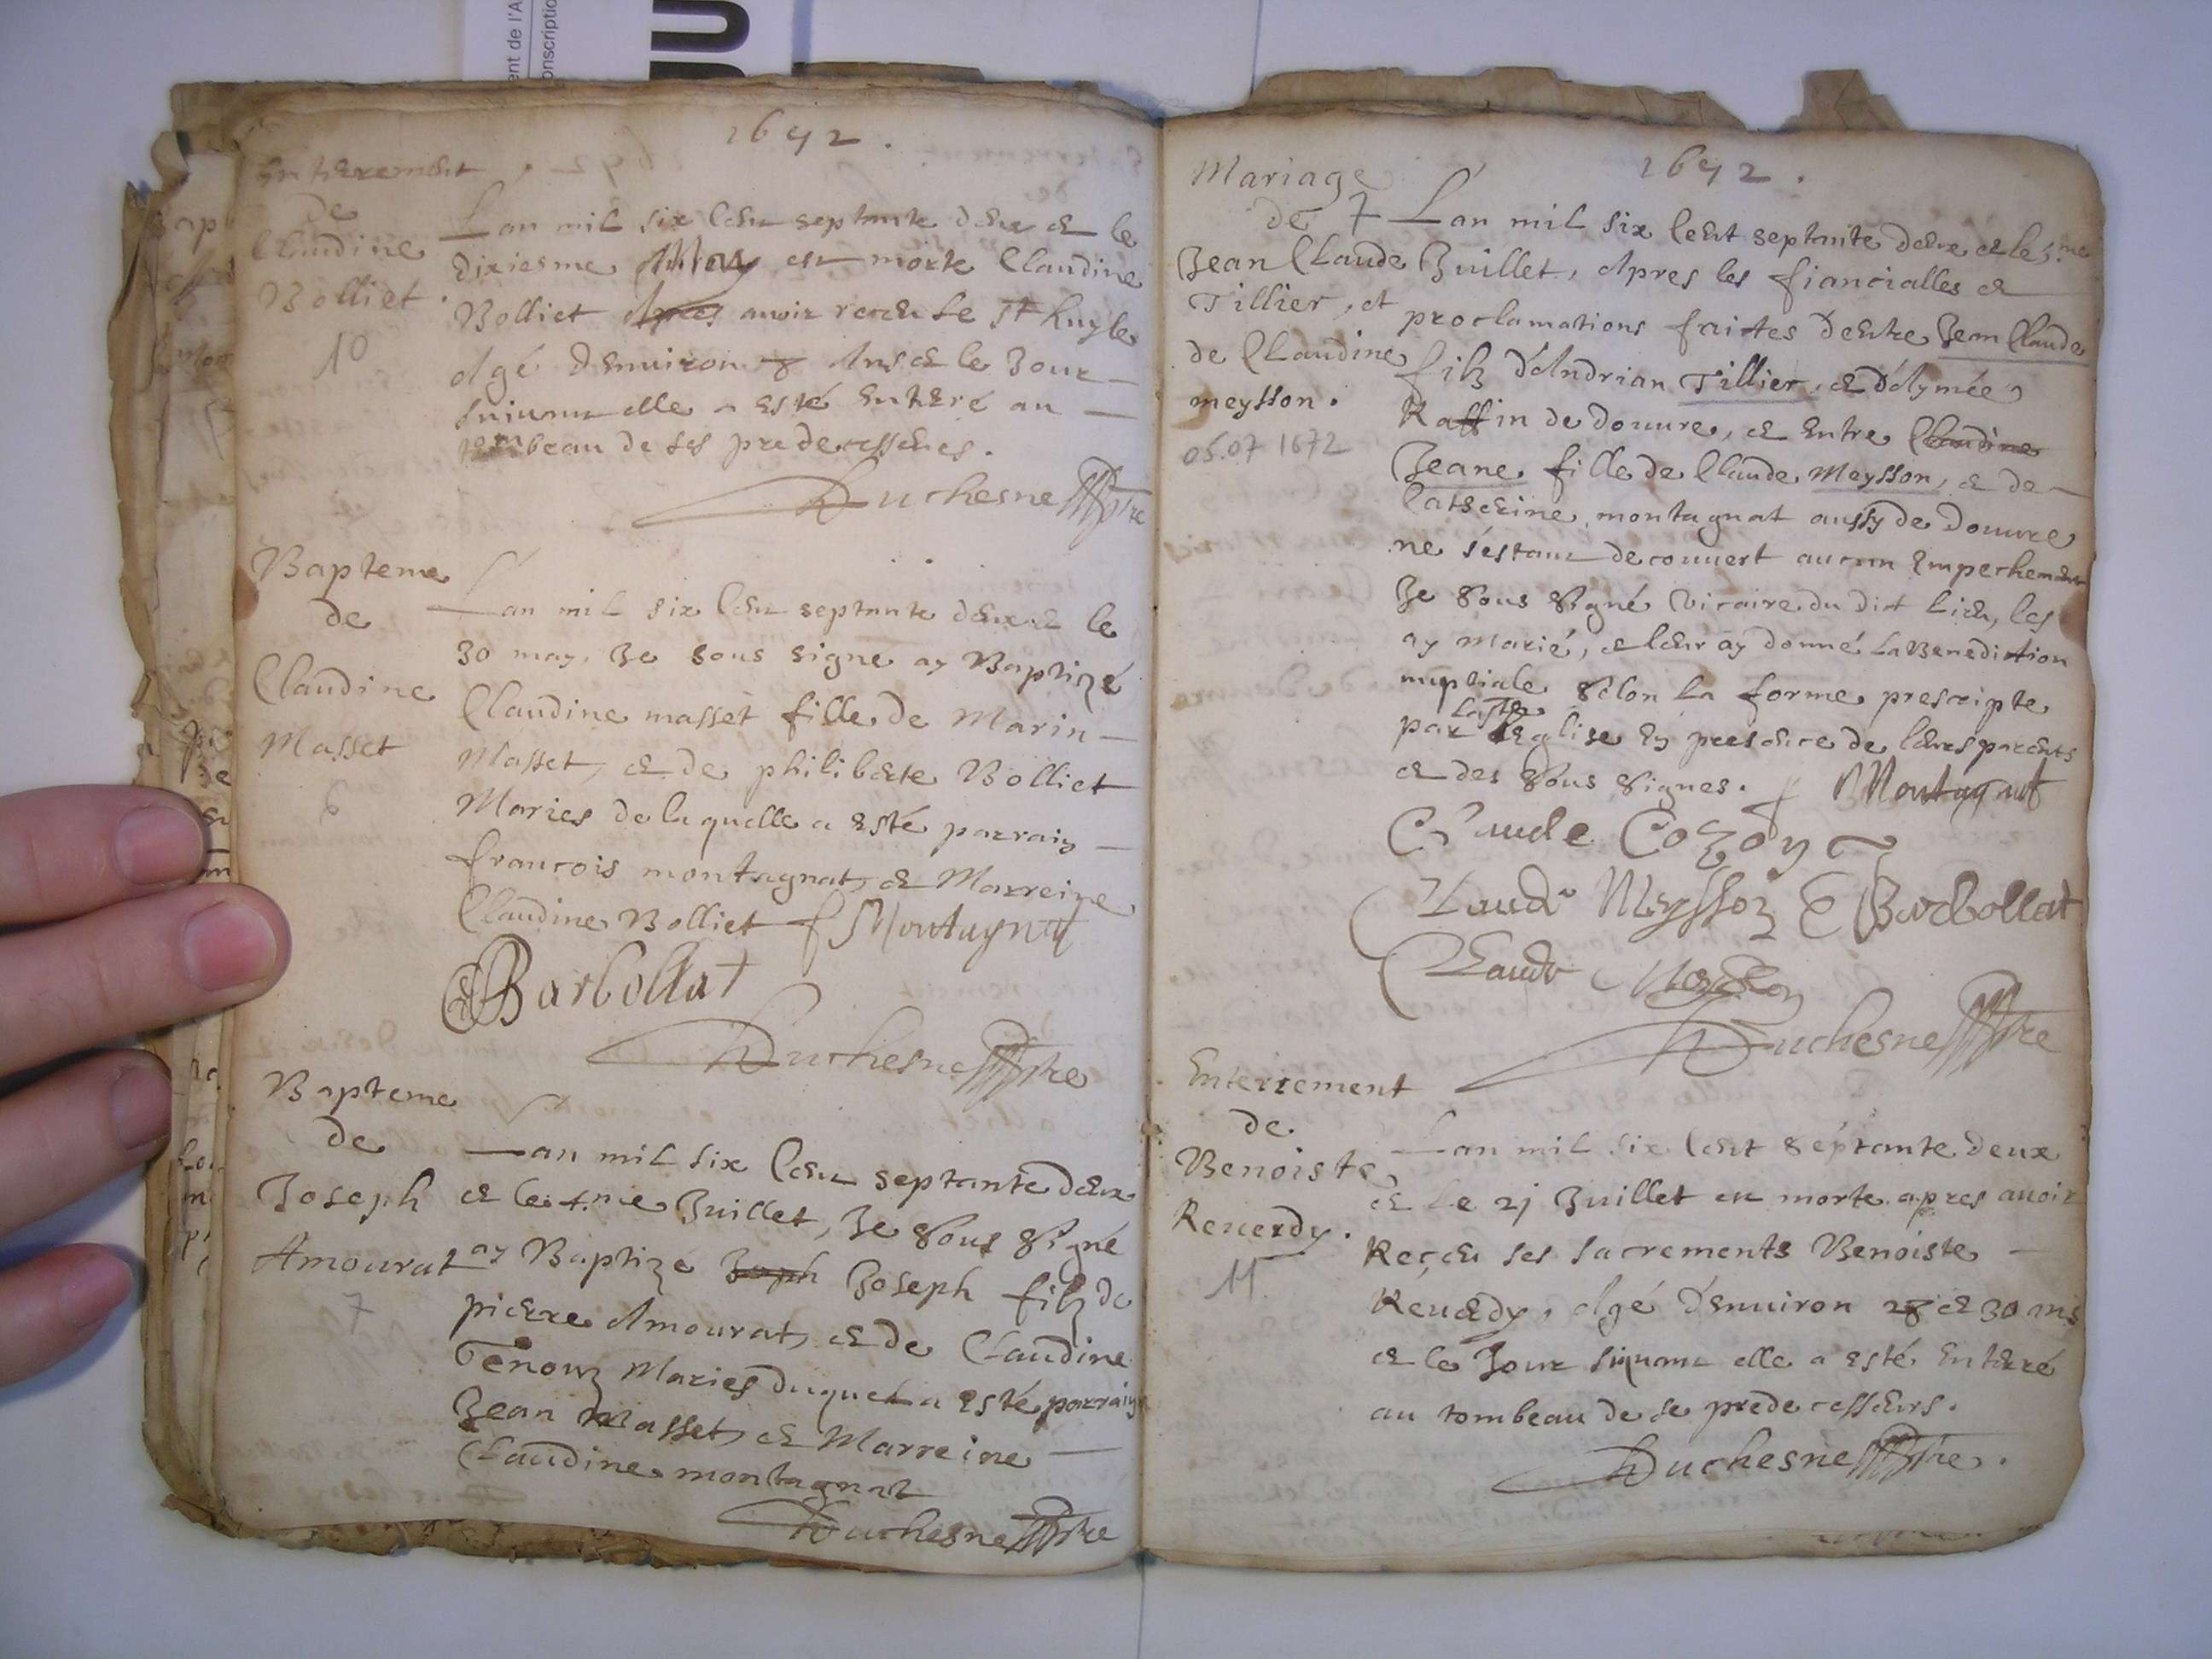 ent de l'A
onscriptio
1672.
Enterrement
de
Claudine
Bolliet.
10
L'an mil six cent septante deux et le
dixiesme May est morte Claudine
Bolliet Apres avoir receu le
Agé d'environ Ans et le Jour
suivant elle a esté Enterré au
tombeau de ses predecesseurs.
Duchesne ptre
Bapteme
de
Claudine
Masset
6
L'an mil six cent septante deux et le
30 may, Je sous signé ay Baptizé
Claudine masset fille de Marin
Masset, et de philiberte Bolliet
Maries de laquelle a esté parrain
francois montagnat, et Marreine
Claudine Bolliet f Montagnat
Barbollat
Duchesne ptre
Bapteme
de
Joseph
Amourat
7
L'an mil six cent septante deux
et le Juillet, Je sous signé
ay Baptizé Joseph filz de
pierre Amourat, et de Claudine
Tenoux Maries duquel a esté parrain
Jean Masset, et Marreine
Claudine montagnat
Duchesne ptre
1672.
Mariage
de
Jean Claude
Tillier, et
de Claudine
meysson.
05.07 1672
L'an mil six cent septante deux et le 5me
Juillet, Apres les fiancialles et
proclamations faictes d'entre Jean Claude
filz d'Andrian Tillier, et d'Aymée
Raffin de douvre, et entre Claudine
Jeane fille de Claude Meysson, et de
Catherine montagnat aussy de Douvre
ne s'estant decouvert aucun Empechement
Je sous signé vicaire du dict lieu, les
ay marié, et leur ay donné la Benediction
nuptiale selon la forme prescripte
par l'Eglise En presence de leurs parents
et des sous signes. f Montagnat
Claude Cozon
Claude Meysson Barbollat
Claude
Duchesne ptre
Enterrement
de
Benoiste
Reverdy.
11
L'an mil six cent septante deux
et Le 21 Juillet est morte apres avoir
Receu ses sacrements Benoiste
Reverdy, Agé d'environ 28 et 30 ans
et le Jour suivant elle a esté Enterré
au tombeau de se predecesseurs.
Duchesne ptre.